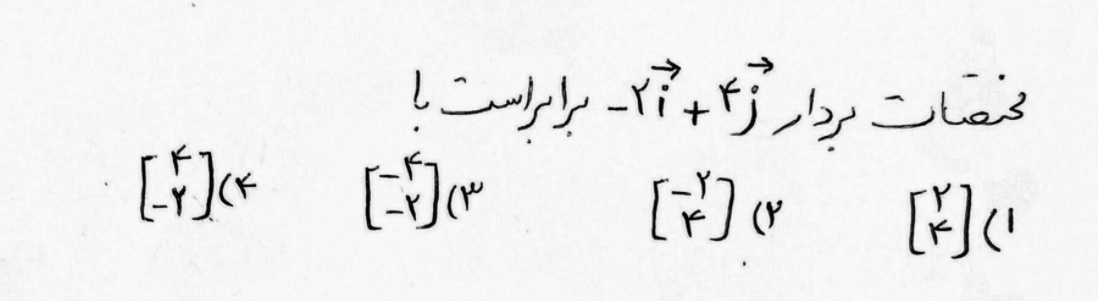 مختصات بردار -۲i⃗ + ۴j⃗ برابر است با
۱) [۲ ۴] ۲) [-۲ ۴] ۳) [-۴ -۲] ۴) [۴ -۲]